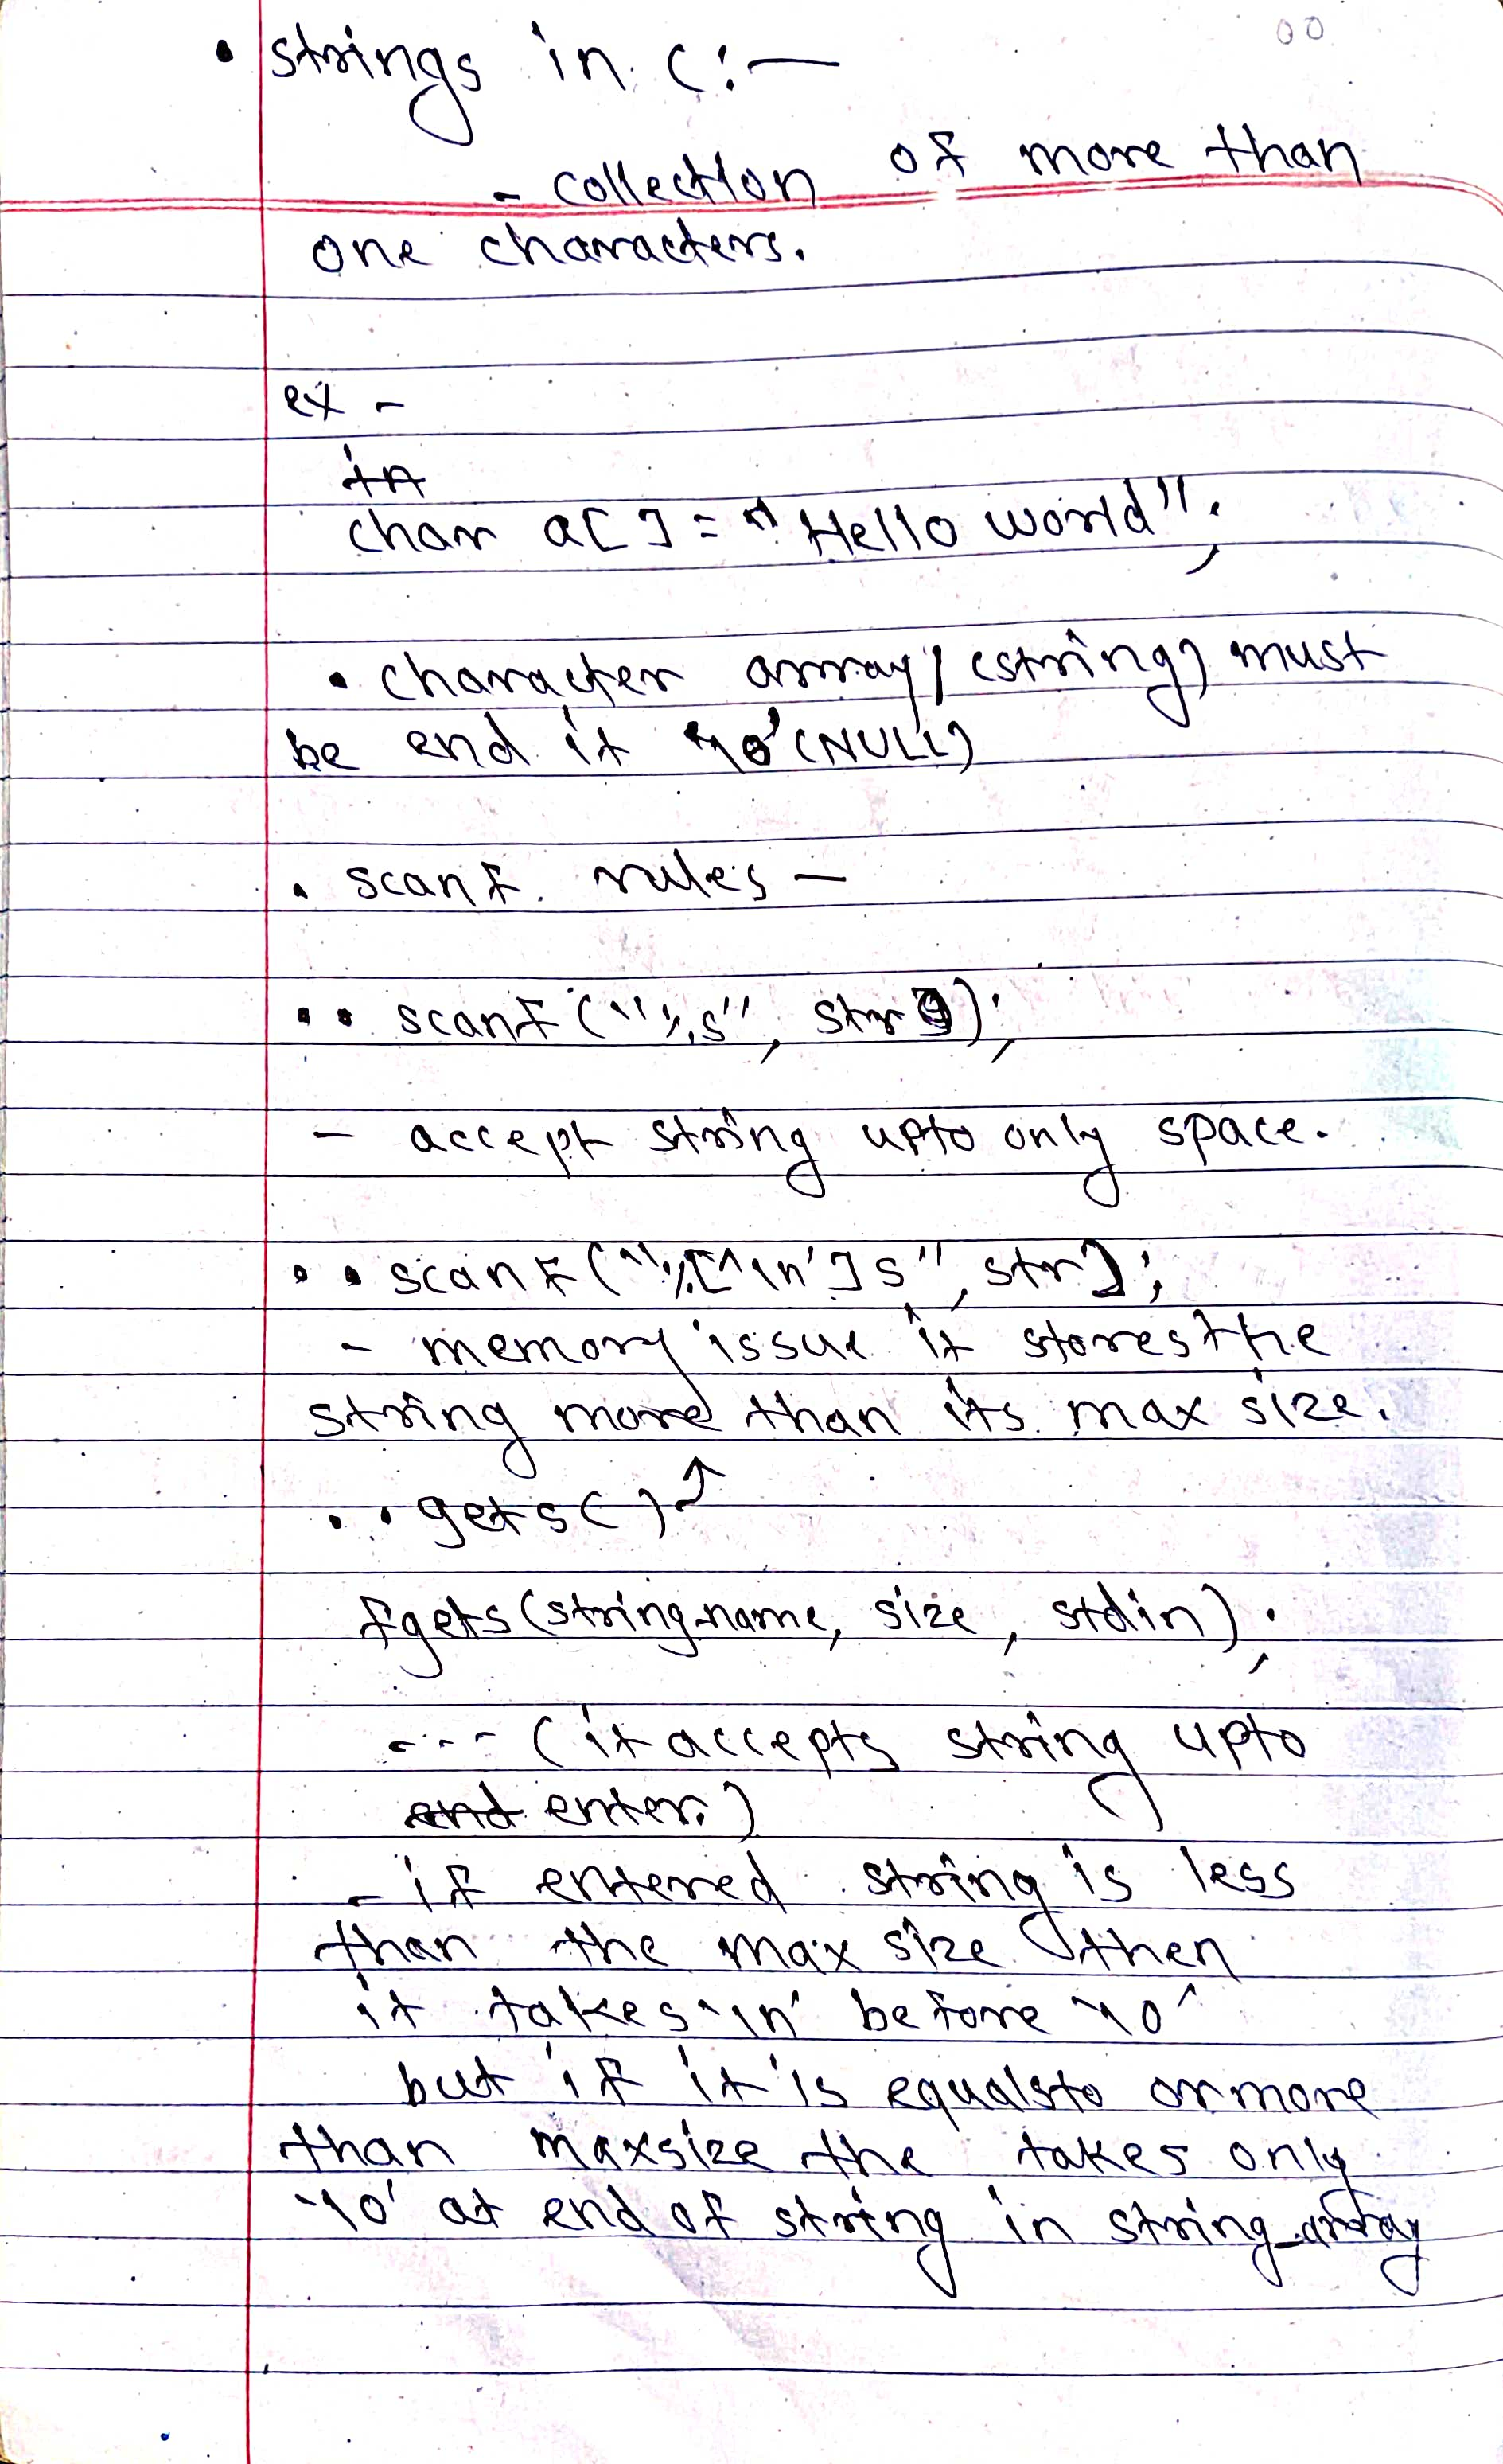 00
• strings in C:-
- collection of more than
one characters.
ex -
in
char a[] = "Hello world";
• character array/(string) must
be end it '\0' (NULL)
• scanf rules -
•• scanf("%s", str);
- accept string upto only space.
•• scanf("%[^\n']s", str);
- memory issue it stores the
string more than its max size.
•• gets() ↑
fgets(string_name, size, stdin);
---- (it accepts string upto
end enter.)
- if entered string is less
than the max size then
it takes '\n' before '\0'
but if it is equals to or more
than maxsize the takes only
'\0' at end of string in string_array